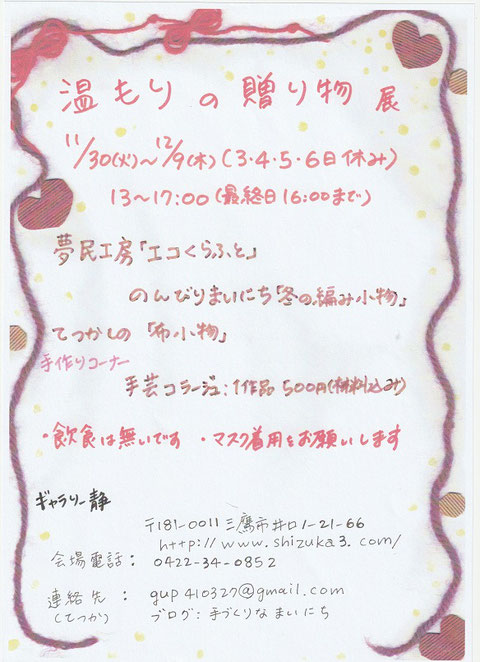 温もりの贈り物展
11/30(火)～12/9(木)(3・4・5・6日休み)
13～17:00(最終日16:00まで)
夢民工房「エコくらふと」
のんびりまいにち「冬の編み小物」
てつかしの「布小物」
手作りコーナー
手芸コラージュ:1作品500円(材料込み)
・飲食は無いです ・マスク着用をお願いします
ギャラリー静
〒181-0011 三鷹市井口1-21-66
http://www.shizuka3.com/
会場電話: 0422-34-0852
連絡先 : gup410327@gmail.com
(てつか) ブログ:手づくりなまいにち